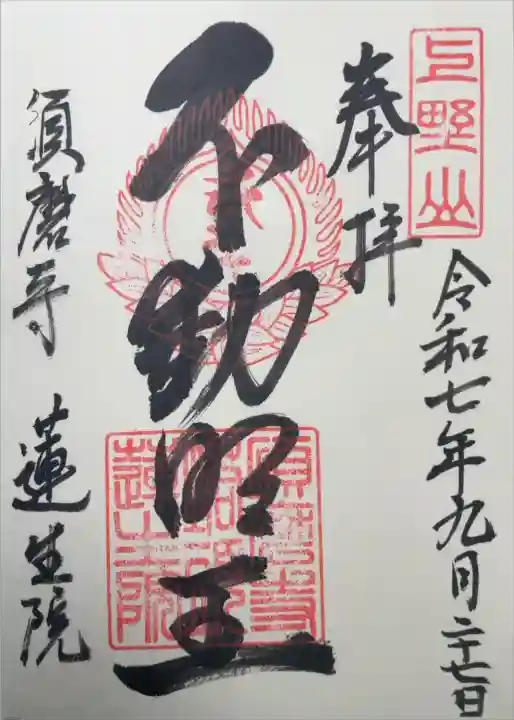 上野山
奉拝
令和七年九月二十七日
不動明王
須磨寺 蓮生院